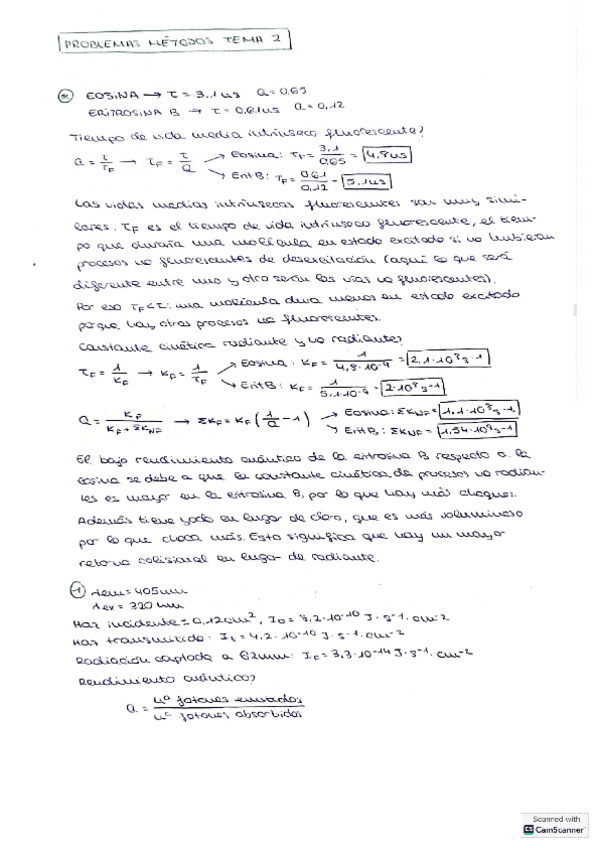 PROBLEMAS MÉTODOS TEMA 2
EOSINA → τ = 3,1 ns Q = 0,65
ERITROSINA B → τ = 0,61 ns Q = 0,12
Tiempo de vida media intrínseco fluorescente?
Q = τ/τF → τF = τ/Q → Eosina: τF = 3,1/0,65 = 4,8 ns
→ EritB: τF = 0,61/0,12 = 5,1 ns
Las vidas medias intrínsecas fluorescentes son muy simi-
lares. τF es el tiempo de vida intrínseco fluorescente, el tiem-
po que duraría una molécula en estado excitado si no hubieran
procesos no fluorescentes de desexcitación (aquí lo que será
diferente entre uno y otro serán las vías no fluorescentes).
Por eso τF < τ: una molécula dura menos en estado excitado
porque hay otros procesos no fluorescentes.
Constante cinética radiante y no radiante?
τF = 1/KF → KF = 1/τF → Eosina: KF = 1/4,8·10⁻⁹ = 2,1·10⁸ s⁻¹
→ EritB: KF = 1/5,1·10⁻⁹ = 2·10⁸ s⁻¹
Q = KF/KF + ΣKNF → ΣKF = KF (1/Q − 1) → Eosina: ΣKNF = 1,1·10⁸ s⁻¹
→ EritB: ΣKNF = 1,54·10⁹ s⁻¹
El bajo rendimiento cuántico de la eritrosina B respecto a la
eosina se debe a que la constante cinética de procesos no radian-
tes es mayor en la eritrosina B, por lo que hay más choques.
Además tiene yodo en lugar de cloro, que es más voluminoso
por lo que choca más. Esto significa que hay un mayor
retorno colisional en lugar de radiante.
λem = 405 nm
λex = 320 nm
Haz incidente = 0,12 cm², I0 = 8,2·10⁻¹⁰ J·s⁻¹·cm⁻²
Haz transmitido: It = 4,2·10⁻¹⁰ J·s⁻¹·cm⁻²
Radiación captada a 62 mm: IF = 3,3·10⁻¹⁴ J·s⁻¹·cm⁻²
Rendimiento cuántico?
Q = nº fotones emitidos/nº fotones absorbidos
Scanned with
CS CamScanner